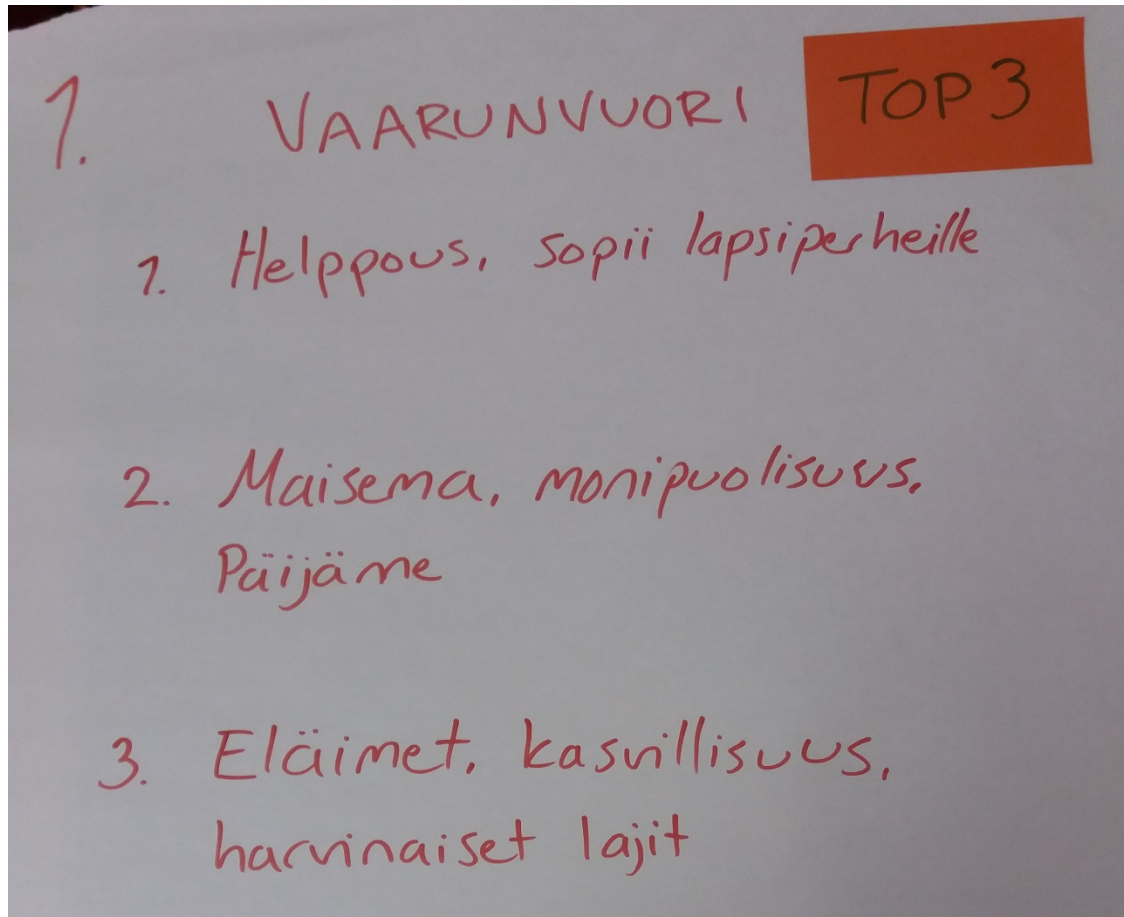 1. VAARUNVUORI TOP 3
1. Helppous, sopii lapsiperheille
2. Maisema, monipuolisuus,
Päijäme
3. Eläimet, kasvillisuus,
harvinaiset lajit